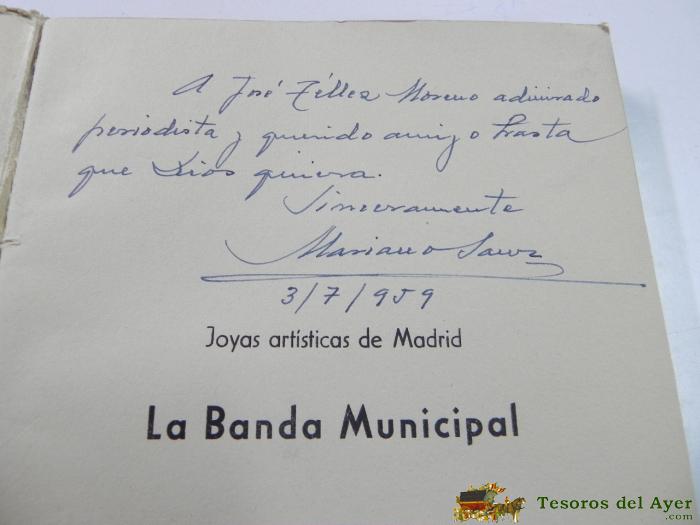 A José Téllez Moreno admirado
periodista y querido amigo hasta
que Dios quiera.
Sinceramente
Mariano Sanz
3/7/959
Joyas artísticas de Madrid
La Banda Municipal
Tesoros del Ayer
.com